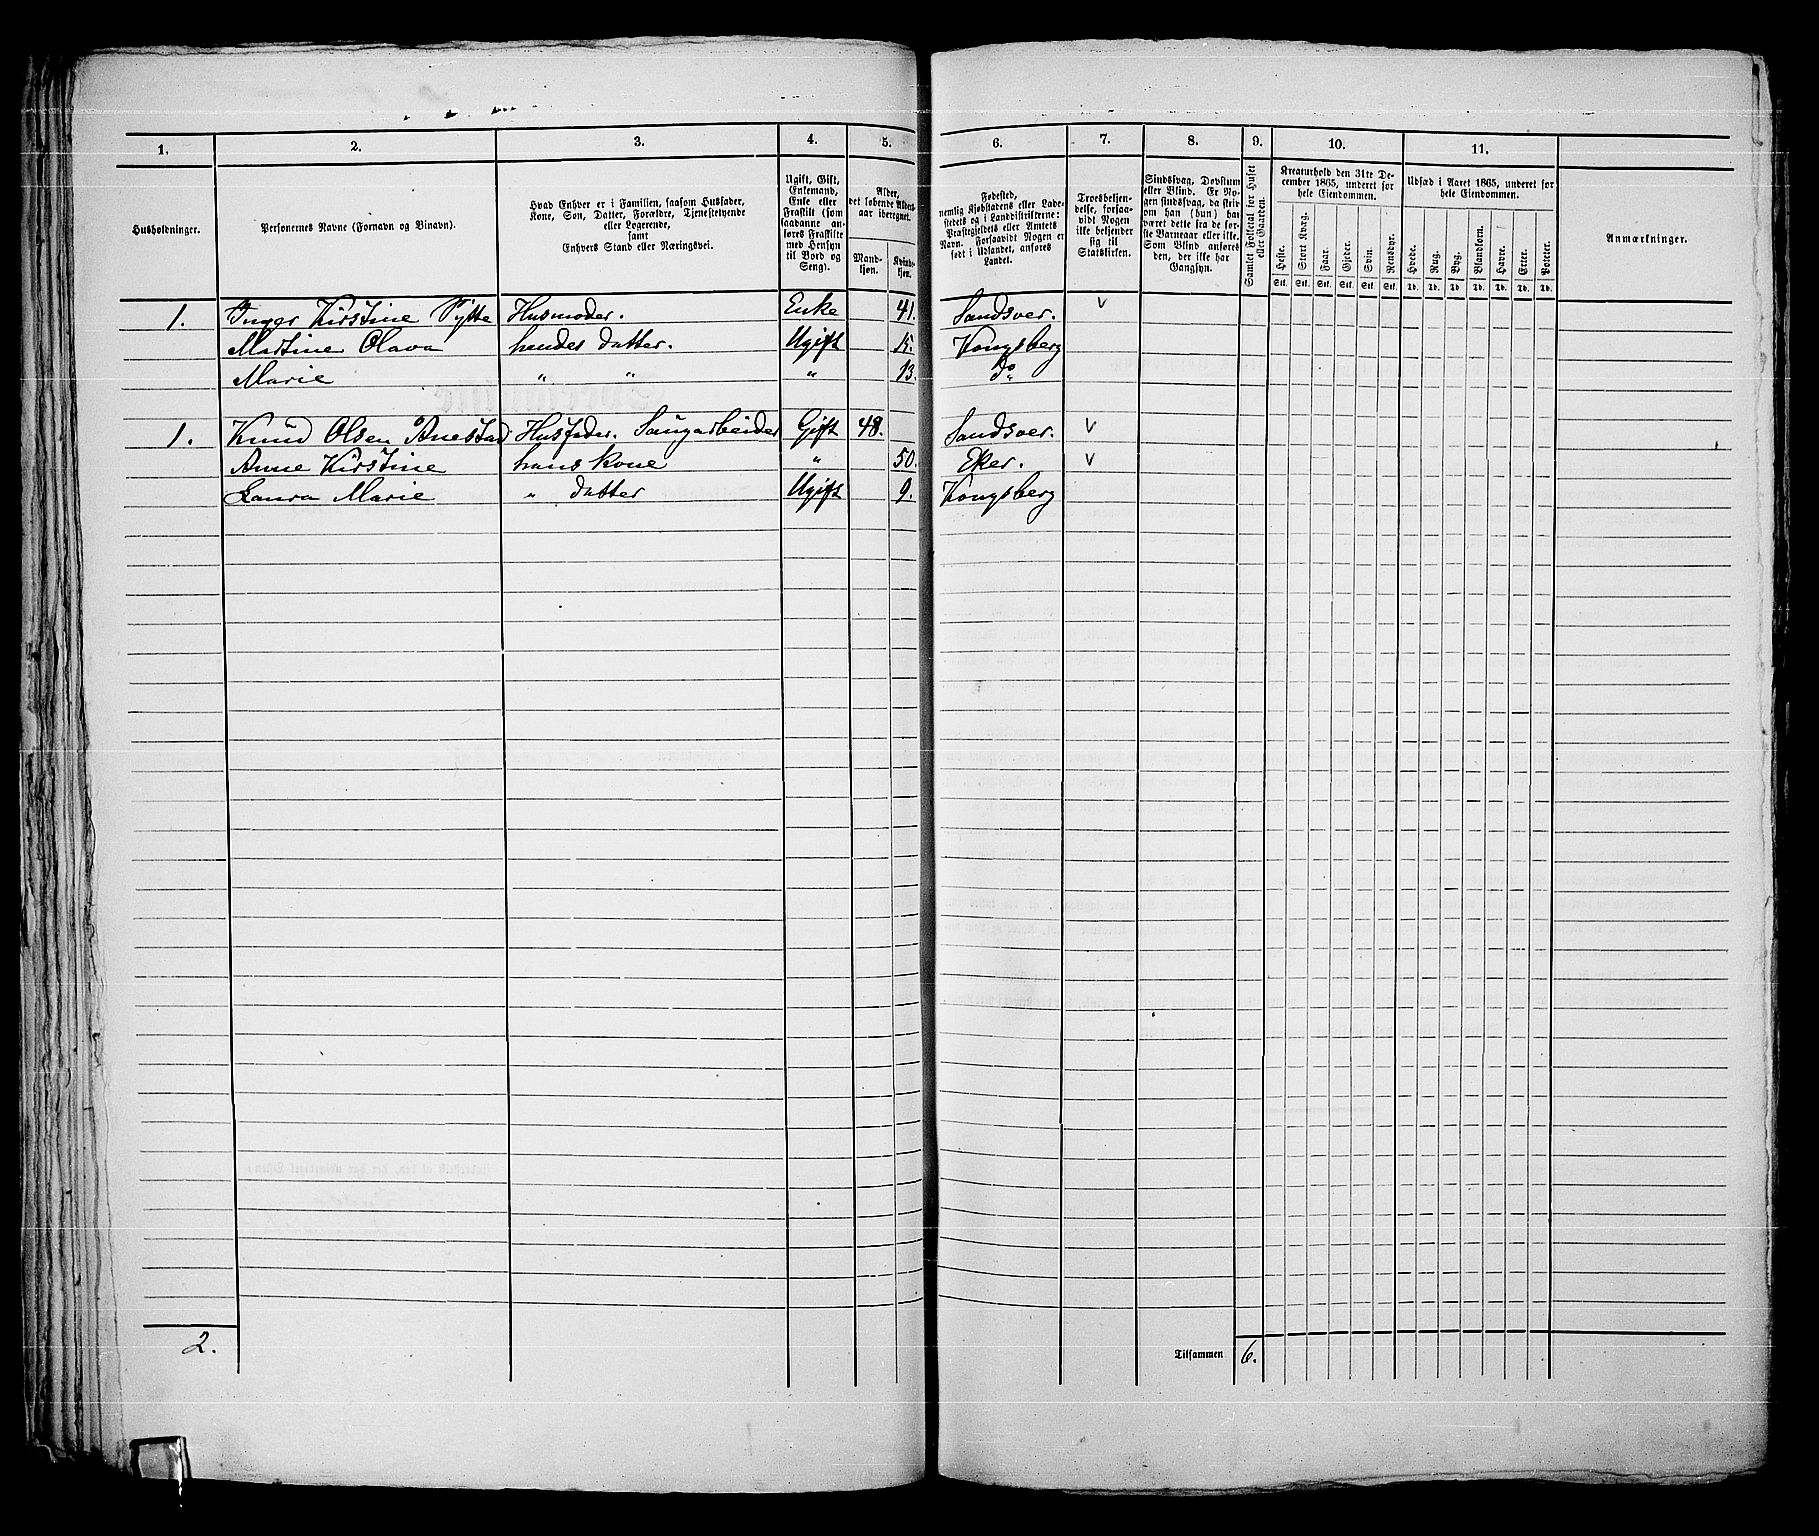 1. 2. 3. 4. 5. 6. 7. 8. 9. 10. 11.
Husholdninger.
Personernes Navne (Fornavn og Binavn).
Hvad Enhver er i Familien, saasom Husfader,
Kone, Søn, Datter, Forældre, Tjenestetyende
eller Logerende,
samt
Enhvers Stand eller Næringsvei.
Ugift, Gift,
Enkemand,
Enke eller
Fraskilt (som
saadanne an-
føres Fraskilte
med Hensyn
til Bord og
Seng).
Alder,
det løbende Alders-
aar iberegnet.
Mand-
kjøn.
Kvinde-
kjøn.
Fødested,
nemlig Kjøbstadens eller Lade-
stedets og i Landdistrikterne:
Præstegjeldets eller Amtets
Navn. Forsaavidt Nogen er
født i Udlandet, anføres
Landet.
Troesbekjen-
delse, forsaa-
vidt Nogen
ikke bekjender
sig til
Statskirken.
Sindssvag, Døvstum
eller Blind. Er No-
gen sindssvag, da skriv
om han (hun) har
været dette fra de før-
ste Barneaar eller ikke.
Som Blind anføres
den, der ikke har
Gangsyn.
Samlet Folketal for Huset
eller Gaarden.
Kreaturhold den 31te De-
cember 1865, underet for
hele Eiendommen.
Heste. Stort Kvæg. Faar. Gjeder. Svin. Rensdyr.
Stk. Stk. Stk. Stk. Stk. Stk.
Udsæd i Aaret 1865, underet for
hele Eiendommen.
Hvede. Rug. Byg. Blandkorn. Havre. Erter. Poteter.
Td. Td. Td. Td. Td. Td. Td.
Anmærkninger.
1. Inger Kirstine Pytte Husmoder. Enke 41. Sandsver. v
Martine Olava hendes Datter. Ugift 15. Kongsberg
Marie " " " 13. do
1. Knud Olsen Anestad Husfader. Saugarbeider Gift 48. Sandsver. v
Anne Kirstine hans Kone " 50. Eker. v
Laura Marie " Datter Ugift 9. Kongsberg
2. Tilsammen 6.